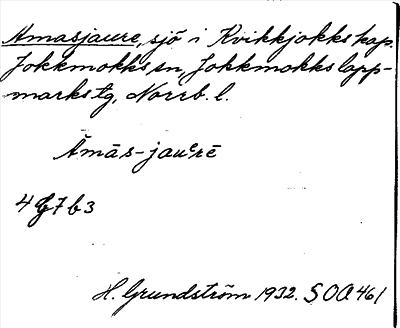 Amasjaure, sjö i Kvikkjokks kap.
Jokkmokks sn, Jokkmokks lapp-
marks tg, Norrb. l.
Ămās-jauᵉrē
4 G 7 b 3
H. Grundström 1932. SOA 461